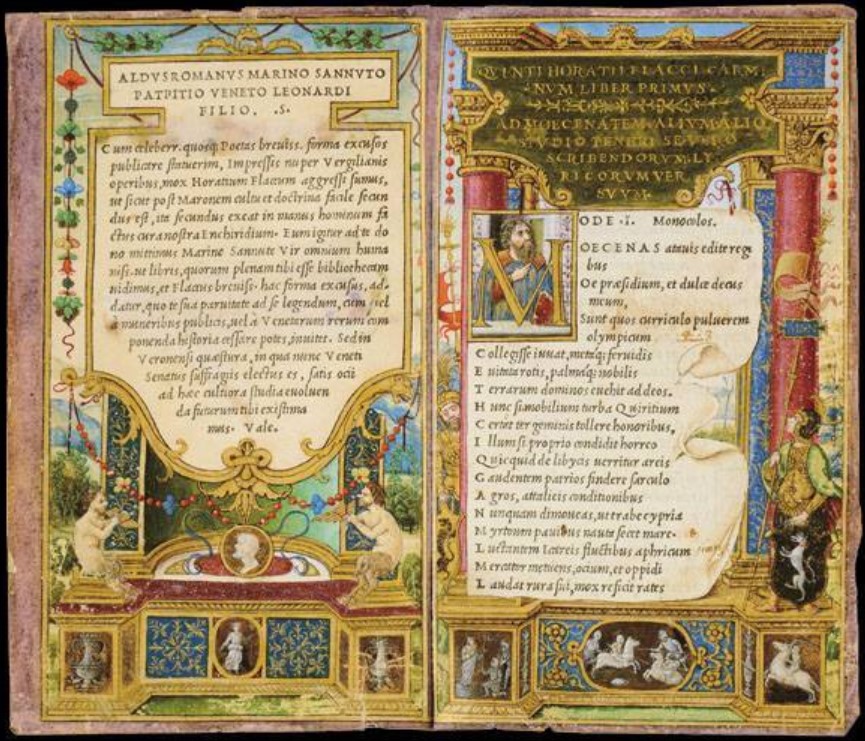 ALDVS ROMANVS MARINO SANNVTO
PATRITIO VENETO LEONARDI
FILIO. .S.
Cum celeberr. quosq; Poetas breuiss. forma excusos
publicare statuerim, Impressis nuper Vergilianis
operibus, mox Horatium Flaccum aggressi sumus,
ut sicut post Maronem cultu et doctrina facile secun
dus est, ita secundus exeat in manus hominum fa
ctus cura nostra Enchiridium. Eum igitur ad te do
no mittimus Marine Sannute Vir omnium huma
niss. ut libris, quorum plenam tibi esse bibliothecam
uidimus, et Flaccus breuiss. hac forma excusus, ad-
datur, quo te sua paruitate ad se legendum, cum uel
à muneribus publicis, uel à Venetarum rerum com
ponenda historia cessare potes, inuitet. Sed in
Veronensi quæstura, in qua nunc Veneti
Senatus suffragiis electus es, satis ocii
ad hæc cultiora studia euoluen
da futurum tibi existima
mus. Vale.
QVINTI HORATII FLACCI CARMI
NVM LIBER PRIMVS.
AD MOECENATEM. ALIVM ALIO
STVDIO TENERI SE
SCRIBENDORVM LY
RICORVM VER
SVVM.
ODE .I. Monocolos.
MOECENAS atauis edite regi
bus
Oe præsidium, et dulce decus
meum,
Sunt quos curriculo puluerem
olympicum
Collegisse iuuat, metaq; feruidis
Euitata rotis, palmaq; nobilis
Terrarum dominos euehit ad deos.
Hunc si mobilium turba Quiritium
Certat ter geminis tollere honoribus,
Illum si proprio condidit horreo
Quicquid de libycis uerritur areis
Gaudentem patrios findere sarculo
Agros, attalicis conditionibus
Nunquam dimoueas, ut trabe cypria
Myrtoum pauidus nauta secet mare.
Luctantem Icareis fluctibus aphricum
Mercator metuens, ocium, et oppidi
Laudat rura sui, mox reficit rates